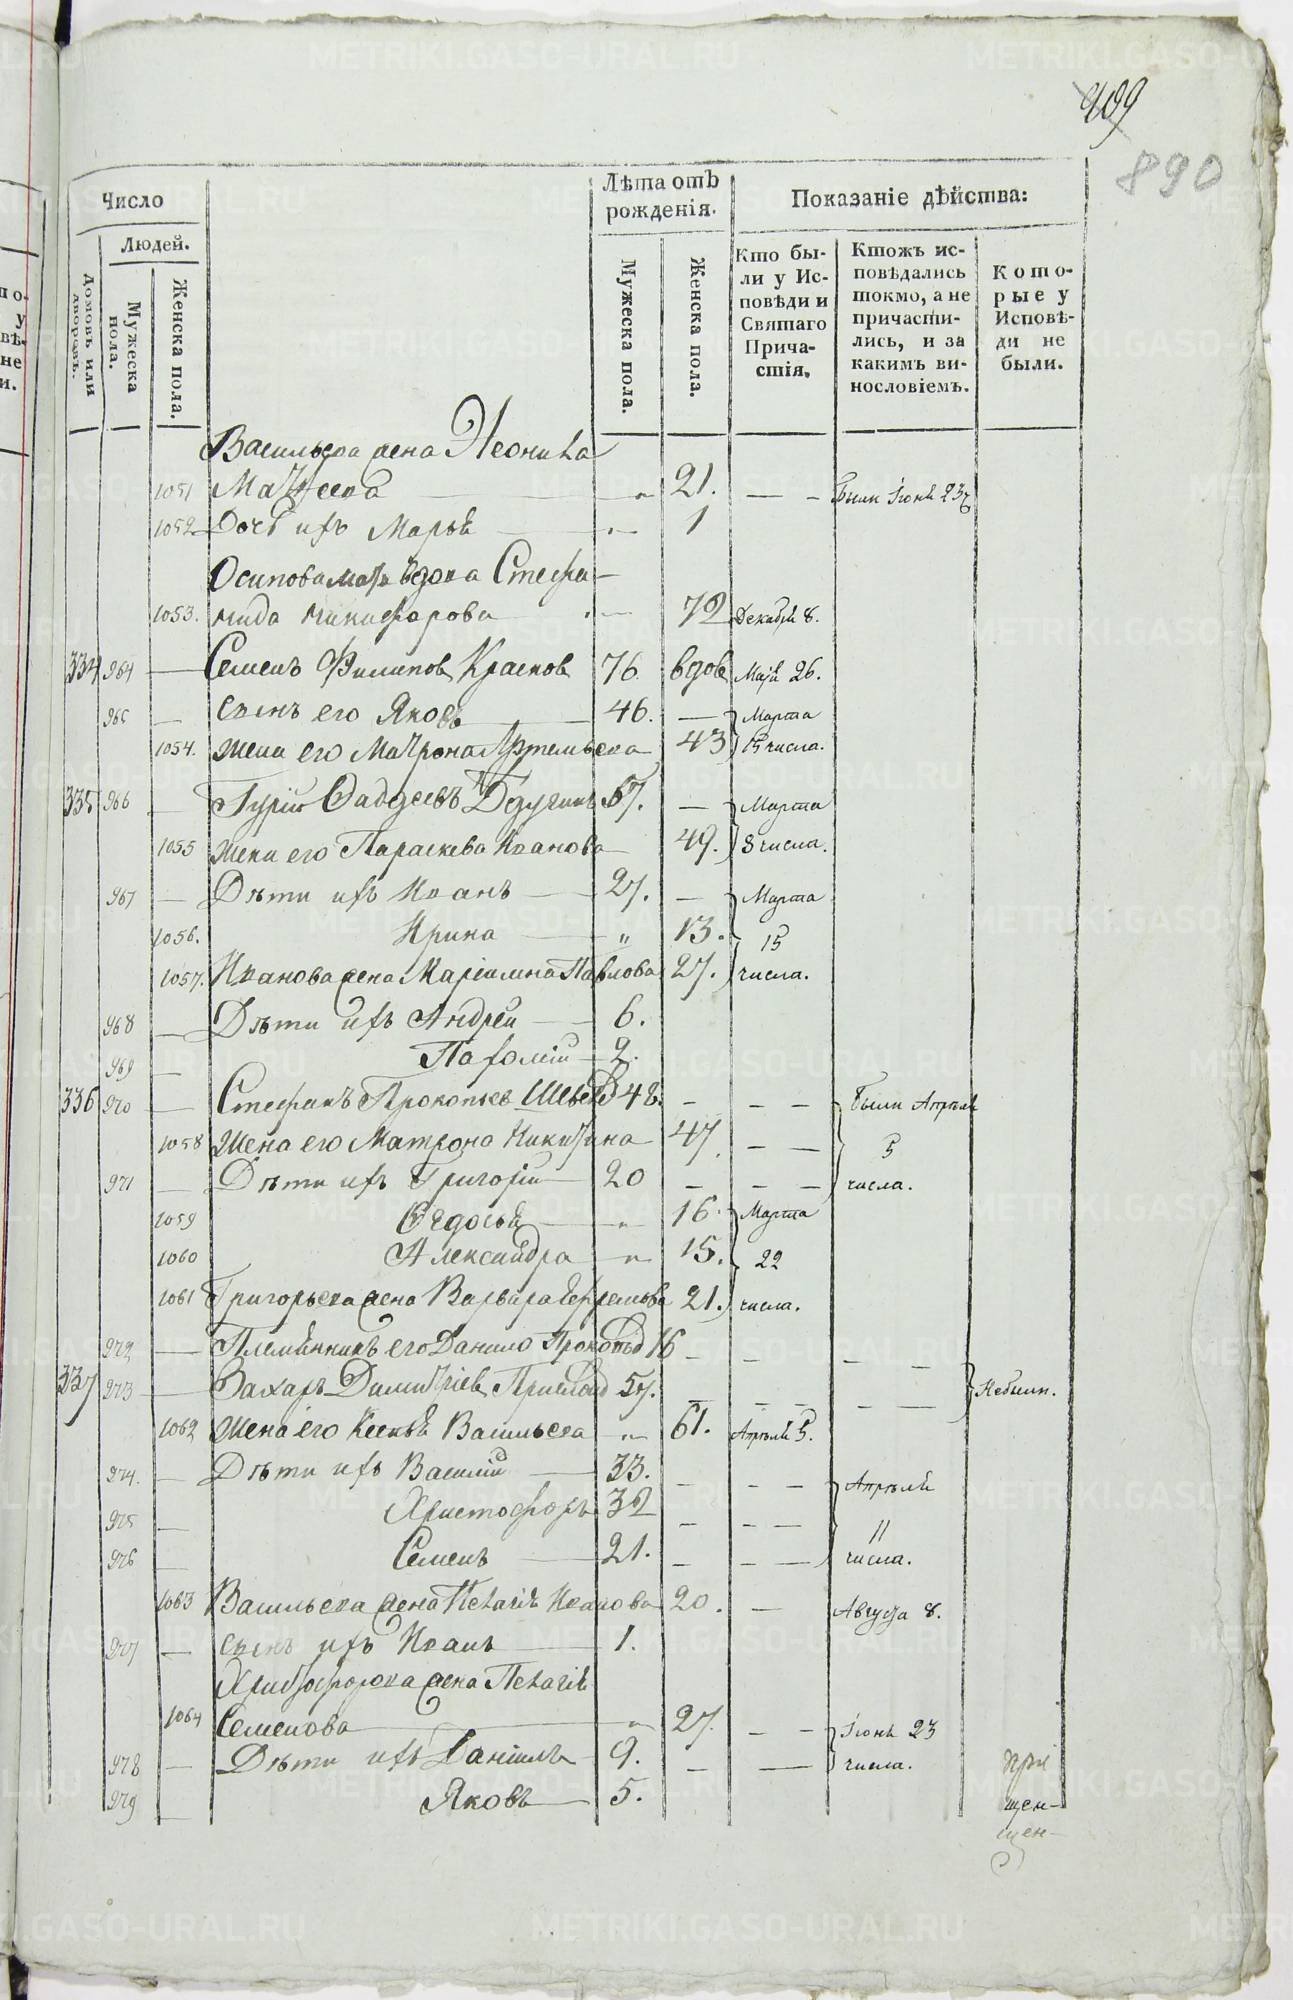 409
890
Число
Людей.
Домовъ или дворовъ.
Мужеска пола.
Женска пола.
Лѣта отъ рожденія.
Мужеска пола.
Женска пола.
Показаніе дѣйства:
Кто были у Исповѣди и Святаго Причастія.
Ктожъ исповѣдались токмо, а не причастились, и за какимъ винословіемъ.
Которые у Исповѣди не были.
Васильева жена Неонила
1051 Матѵеева — „ 21. — — были Іюня 23
1052 Дочь ихъ Марья — „ 1
Осипова мать вдова Стефа-
1053. нида Никифорова „ 72 Декабря 8.
334 964 — Семенъ Филиповъ Красновъ 76 вдовъ Маія 26.
965 — Сынъ его Яковъ — 46. — Марта
1054. Жена его Матрона Артемьева 43 15 числа.
335 966 — Гурій Фадѣевъ 57. — Марта
1055 Жена его Параскева Иванова 49. 8 числа.
967 — Дѣти ихъ Иванъ — 27. — Марта
1056. Ирина — „ 13. 15
1057. Иванова жена Маріамна Павлова 27. числа.
968 — Дѣти ихъ Андрей — 6.
969 — Пафомій — 2.
336 970 — Стефанъ Прокопьевъ Шевелевъ 48. — — — были Апрѣля
1058 Жена его Матрона Никитина 47. — — 5
971 — Дѣти ихъ Григорій — 20 — — — числа.
1059 Ѳедосья — „ 16. Марта
1060 Александра — „ 15. 22
1061 Григорьева жена Варвара Ефремова 21. числа.
972 — Племянникъ его Данило Прокопьевъ 16 — — — —
337 973 — Захаръ Димитріевъ 57. — — — — — Небыли.
1062 Жена его Ксенья Васильева — „ 61. Апрѣля 5.
974. — Дѣти ихъ Василій — 33. — — — Апрѣля
975 — Христофоръ 32 — — — 11
976 — Семенъ — 21. — — — числа.
1063 Васильева жена Пелагія Иванова 20. — Августа 8.
977 — Сынъ ихъ Иванъ — 1.
Христофорова жена Пелагія
1064 Семенова — „ 27. — — Іюня 23
978 — Дѣти ихъ Даніилъ — 9. — — числа.
979 — Яковъ — 5.
при
щен-
щен-
METRIKI.GASO-URAL.RU